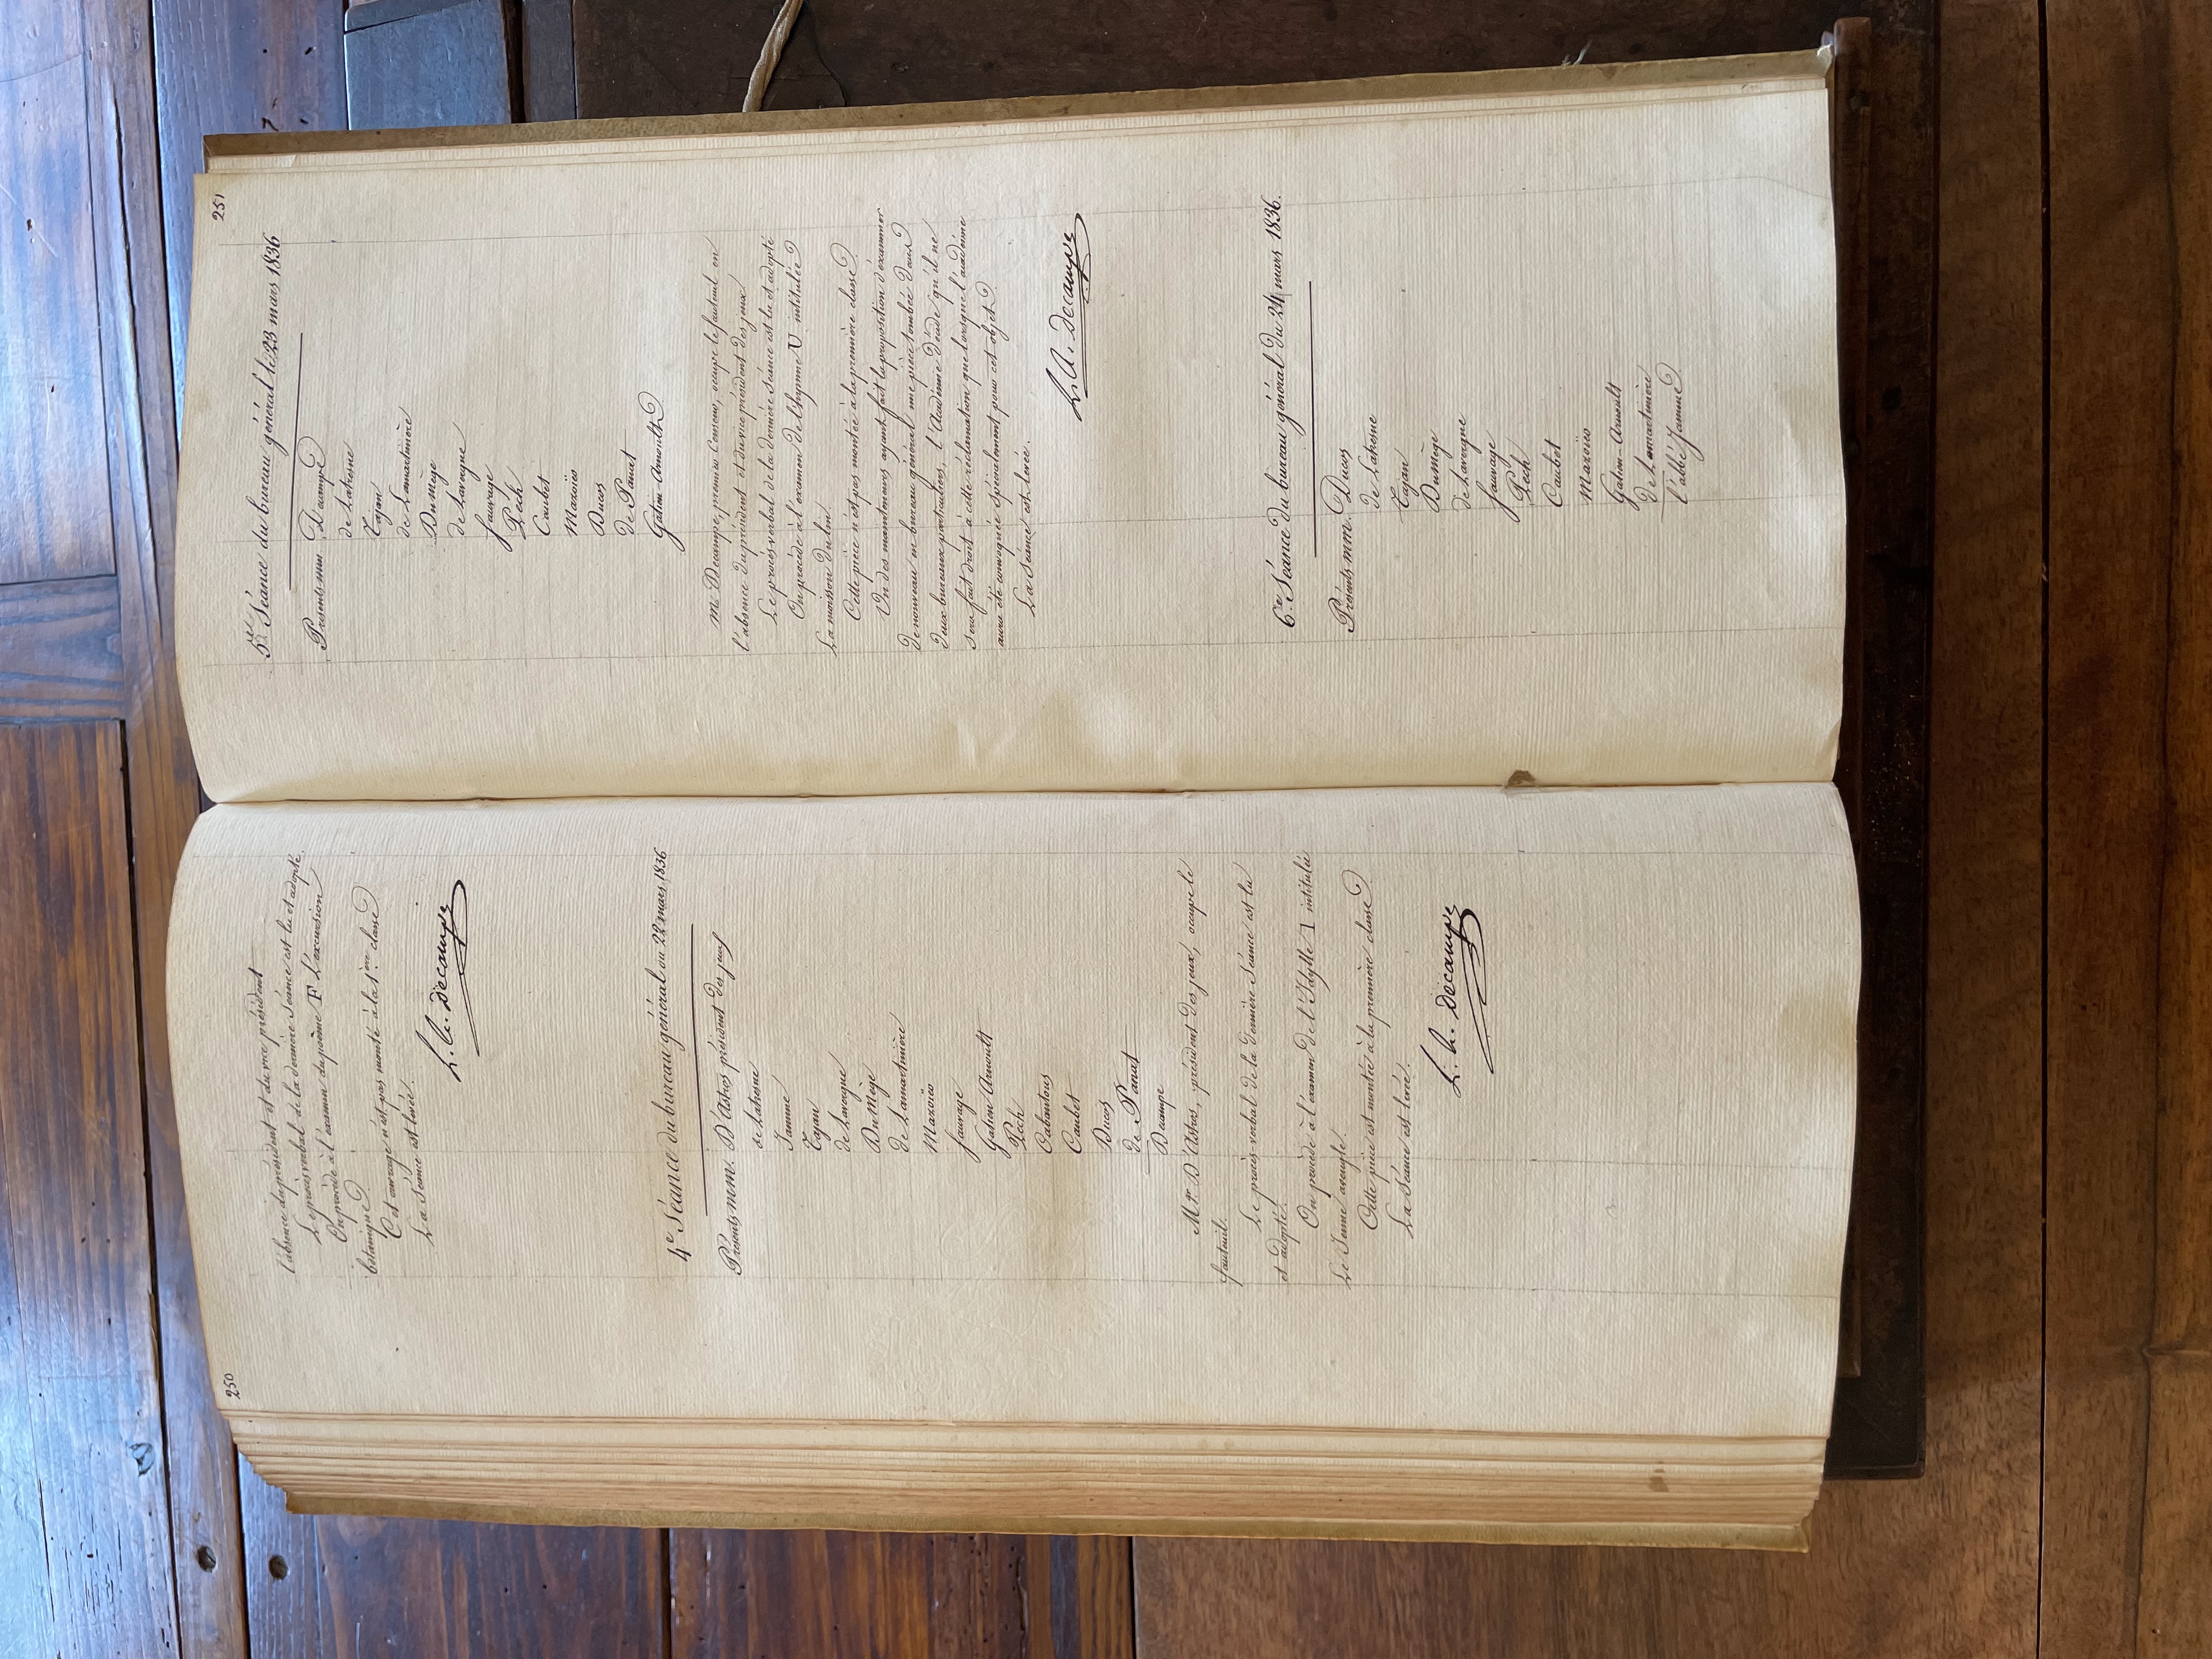 250
l'absence du président et du vice président
Le procès verbal de la dernière séance est lu et adopté.
On procède à l'examen du poème F L'excursion
botanique
Cet ouvrage n'est pas monté à la 1ère classe
La séance est levée.
L. A. Decampe
4e Séance du bureau général du 22 mars 1836
Présents mm. D'Astros président des jeux
de Lahosne
Jamme
Tajan
de Lavergne
Du Mège
de Lamartinière
Mazoïeo
Sauvage
Gatien Arnoult
Pech
Cabantous
Caubet
Ducos
de Panat
Decampe
Mr. D'Astros, président des jeux, occupe le
fauteuil.
Le procès-verbal de la dernière séance est lu
et adopté.
On procède à l'examen de l'Idylle I intitulée
Le Jeune aveugle.
Cette pièce est montée à la première classe
La séance est levée.
L. A. Decampe
251
5e Séance du bureau général le 23 mars 1836
Présents mm Decampe
de Lahosne
Tajan
de Lamartinière
Du Mège
de Lavergne
Sauvage
Pech
Caubet
Mazoïeo
Ducos
de Panat
Gatien-Arnoult
m. Decampe, premier Censeur, occupe le fauteuil en
l'absence du président et du vice président des jeux
Le procès verbal de la dernière séance est lu et adopté
On procède à l'examen de l'hymne U intitulée
La moisson du lin
Cette pièce n'est pas montée à la première classe
Un des mainteneurs ayant fait la proposition d'examiner
de nouveau en bureau général une pièce tombée dans
deux bureaux particuliers, l'Académie décide qu'il ne
sera fait droit à cette réclamation que lorsque l'académie
aura été convoquée spécialement pour cet objet
La séance est levée.
L. A. Decampe
6e Séance du bureau général du 24 mars 1836.
Présents mm. Ducos
de Lahosne
Tajan
Dumège
de Lavergne
Sauvage
Pech
Caubet
Mazoïeo
Gatien-Arnoult
de Lamartinière
l'abbé Jamme